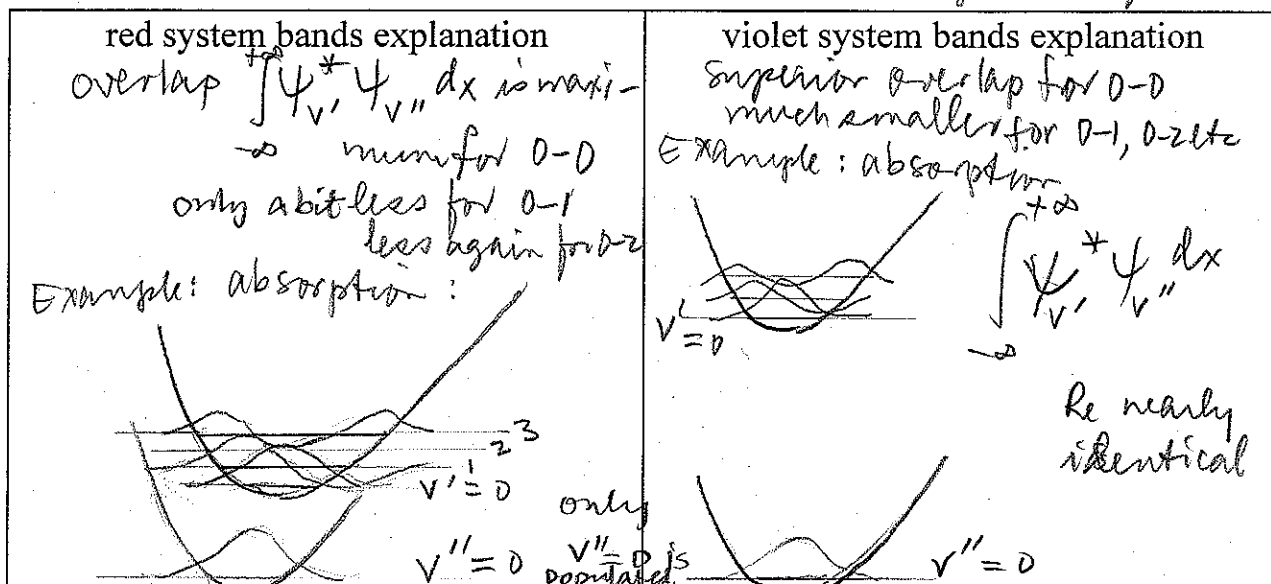 red system bands explanation
overlap ∫ψ*v' ψv'' dx is maxi-
+∞
-∞
mum for 0-0
only a bit less for 0-1
less again for 0-2
Example: absorption:
3
2
1
v'=0
only
v''=0 is
populated
v''=0
violet system bands explanation
superior overlap for 0-0
much smaller for 0-1, 0-2 etc
Example: absorption
+∞
∫ψ*v' ψv'' dx
-∞
v'=0
Re nearly
identical
v''=0